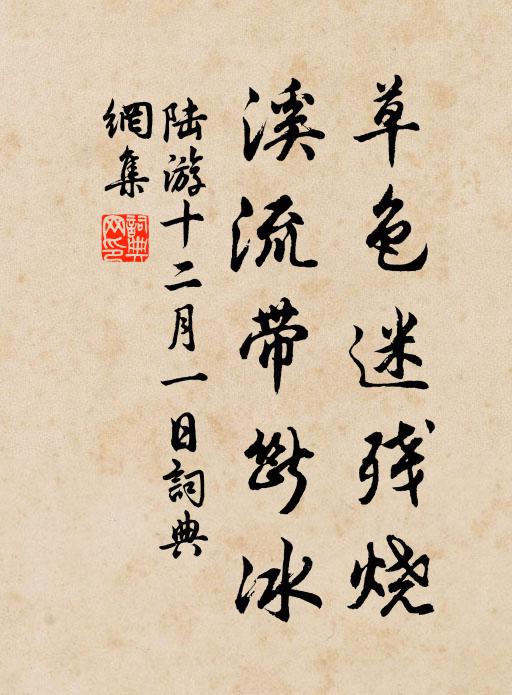 草色迷残烧
溪流带断冰
陆游十二月一日詞典
網集
詞典
网印